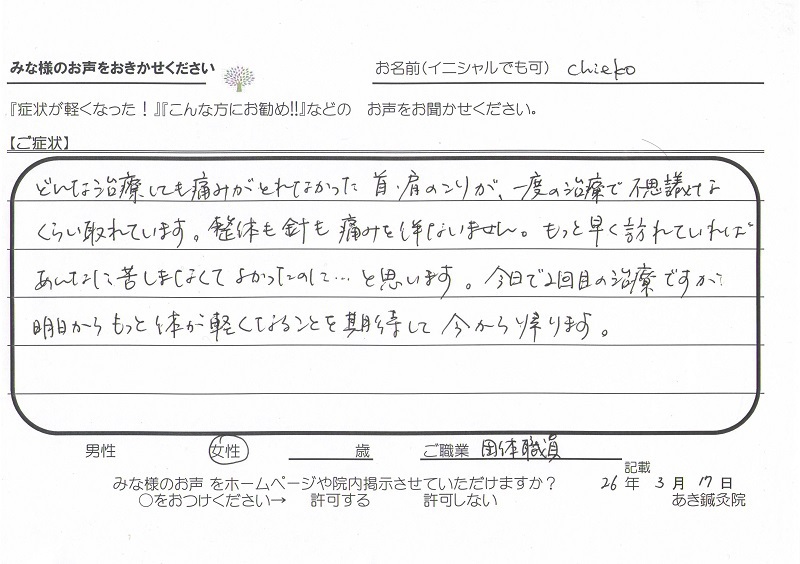 みな様のお声をおきかせください
お名前(イニシャルでも可) chieko
『症状が軽くなった！』『こんな方にお勧め!!』などの お声をお聞かせください。
【ご症状】
どんな治療しても痛みがとれなかった首・肩のこりが、一度の治療で不思議な
くらい取れています。整体も針も痛みを伴ないません。もっと早く訪れていれば
あんなに苦しまなくてよかったのに…と思います。今日で2回目の治療ですが
明日からもっと体が軽くなることを期待して今から帰ります。
男性 女性 歳 ご職業 団体職員
みな様のお声 をホームページや院内掲示させていただけますか？
記載
26 年 3 月 17 日
○をおつけください→ 許可する 許可しない あき鍼灸院